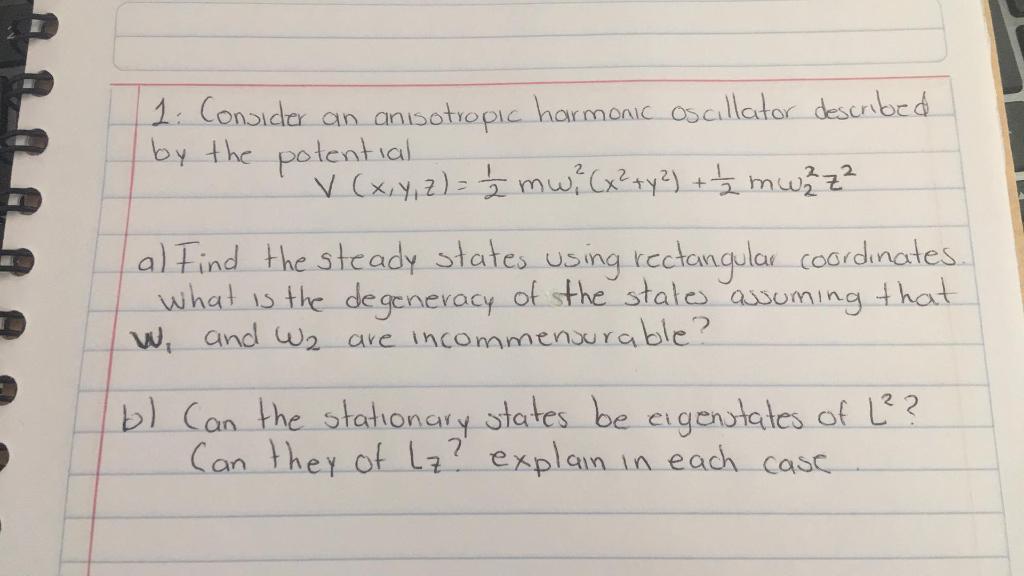 1: Consider an anisotropic harmonic oscillator described
by the potential
V(x,y,z) = ½ mω₁²(x²+y²) + ½ mω₂²z²
a) Find the steady states using rectangular coordinates.
What is the degeneracy of the states assuming that
ω₁ and ω₂ are incommensurable?
b) Can the stationary states be eigenstates of L²?
Can they of Lz? explain in each case.